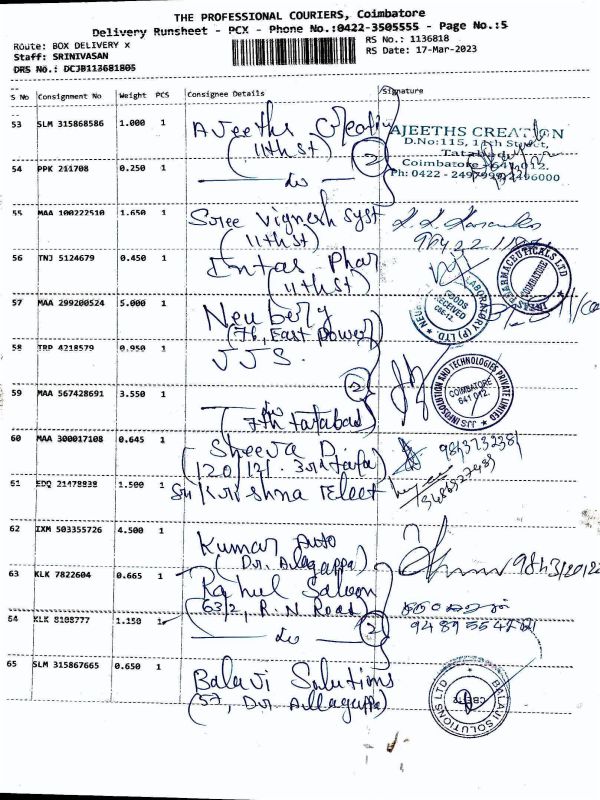 THE PROFESSIONAL COURIERS, Coimbatore
Delivery Runsheet - PCX - Phone No.:0422-3505555 - Page No.:5
Route: BOX DELIVERY x
RS No.: 1136818
Staff: SRINIVASAN
RS Date: 17-Mar-2023
DRS No.: DCJB113681805
S No Consignment No Weight PCS Consignee Details Signature
53 SLM 315868586 1.000 1 Ajeeths Creation
(11th st)
AJEETHS CREATION
D.No:115, 11th Street,
Tatabad,
Coimbatore - 641 012.
54 PPK 211708 0.250 1 do 2
55 MAA 100222510 1.650 1 Sree Vignesh Syst
(11th st)
56 TNJ 5124679 0.450 1 Intas Phar
(11th st)
INTAS PHARMACEUTICALS LTD
COIMBATORE
57 MAA 299200524 5.000 1 Neubery
(76, East power)
LABORATORY (P) LTD
GOODS
RECEIVED
CBE-12.
58 TRP 4218579 0.950 1 JJS.
59 MAA 567428691 3.550 1 do 2
(7th Tatabad)
JJS INFOSOLUTION AND TECHNOLOGIES PRIVATE LIMITED
COIMBATORE
641 012.
60 MAA 300017108 0.645 1 Sheeva D
(120/121. 3rd Tata)
61 EDQ 21478838 1.500 1 Sri Krishna Elect
62 IXM 503355726 4.500 1 Kumar Auto
(Dr. Allagappa)
63 KLK 7822604 0.665 1 Rahul Saloon
(63/2, R.N Road)
64 KLK 8108777 1.150 1 do 2
65 SLM 315867665 0.650 1 Balavi Solutions
(57, Dr Allagappa)
BALAJI SOLUTIONS LTD